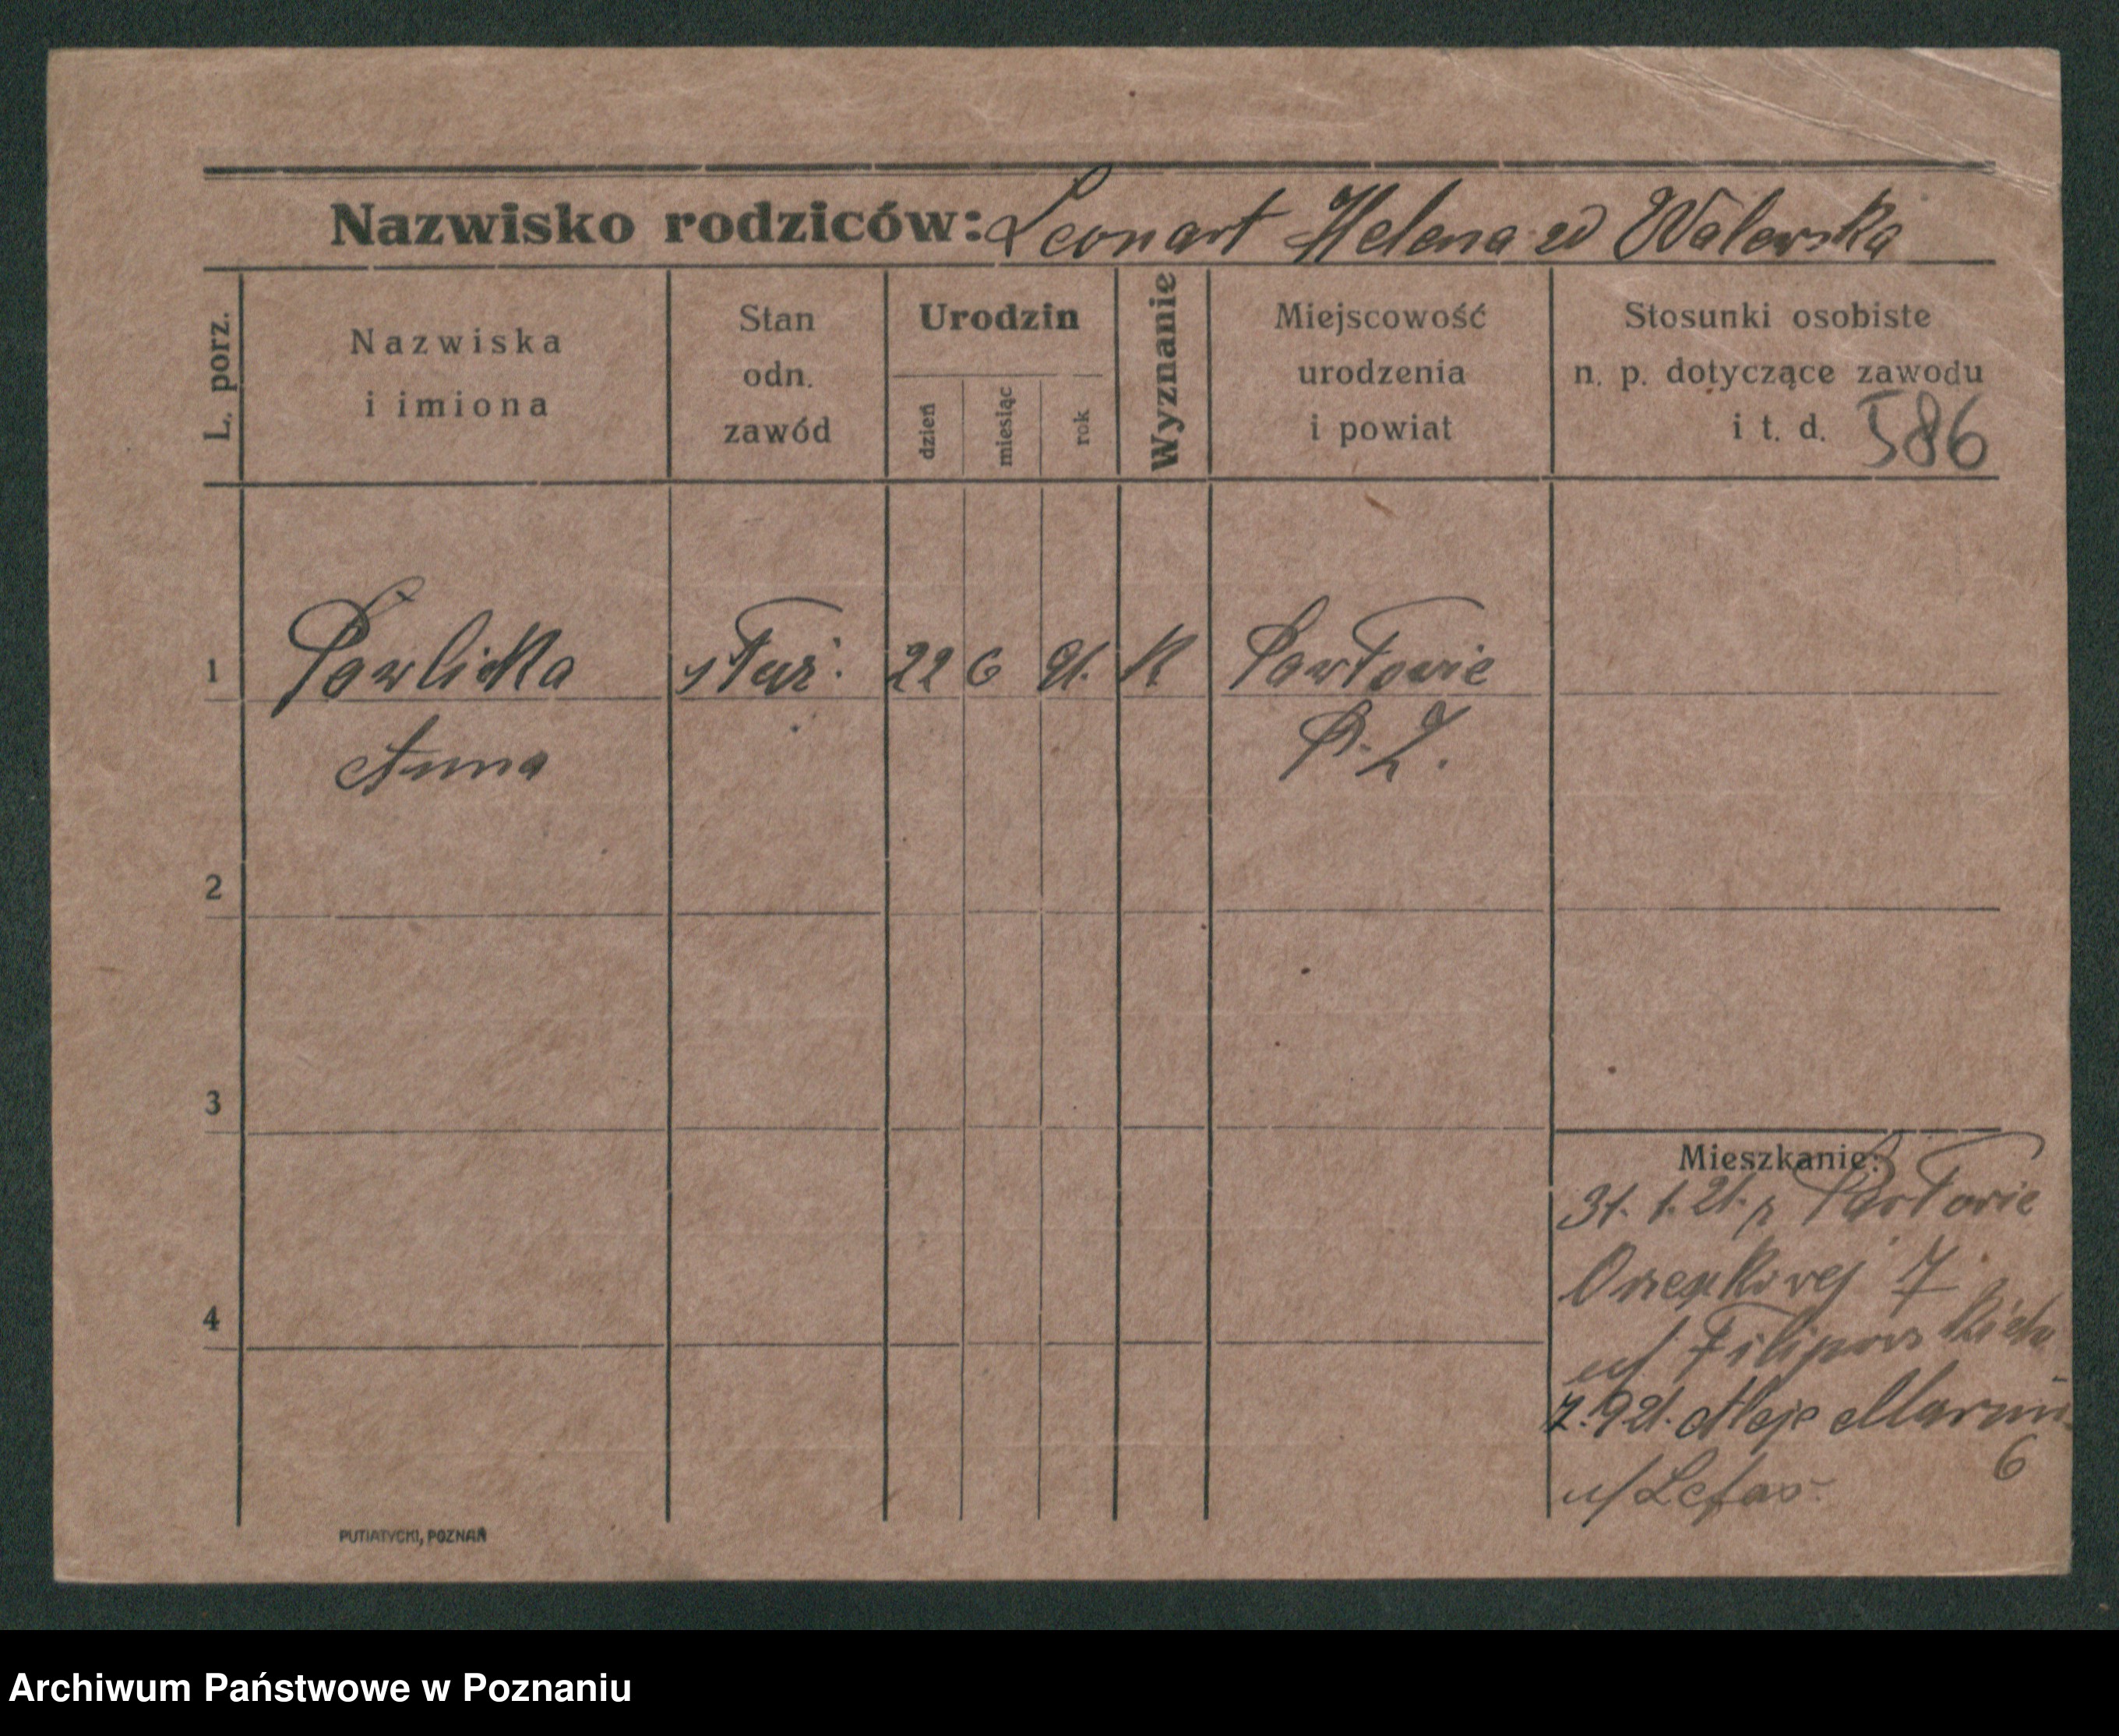 Nazwisko rodziców: Leonart Helena zd Walerska
L. porz.
Nazwiska
i imiona
Stan
odn.
zawód
Urodzin
dzień
miesiąc
rok
Wyznanie
Miejscowość
urodzenia
i powiat
Stosunki osobiste
n. p. dotyczące zawodu
i t. d. 586
1 Pawlicka służ. 22 6 K Pawłowie
Anna
2
3
4
Mieszkanie:
31. 1. 21. z Pawłowie
7
u/ Filipowskich
7. 9 21. Aleje Marcin
6
u/
PUTIATYCKI, POZNAŃ
Archiwum Państwowe w Poznaniu